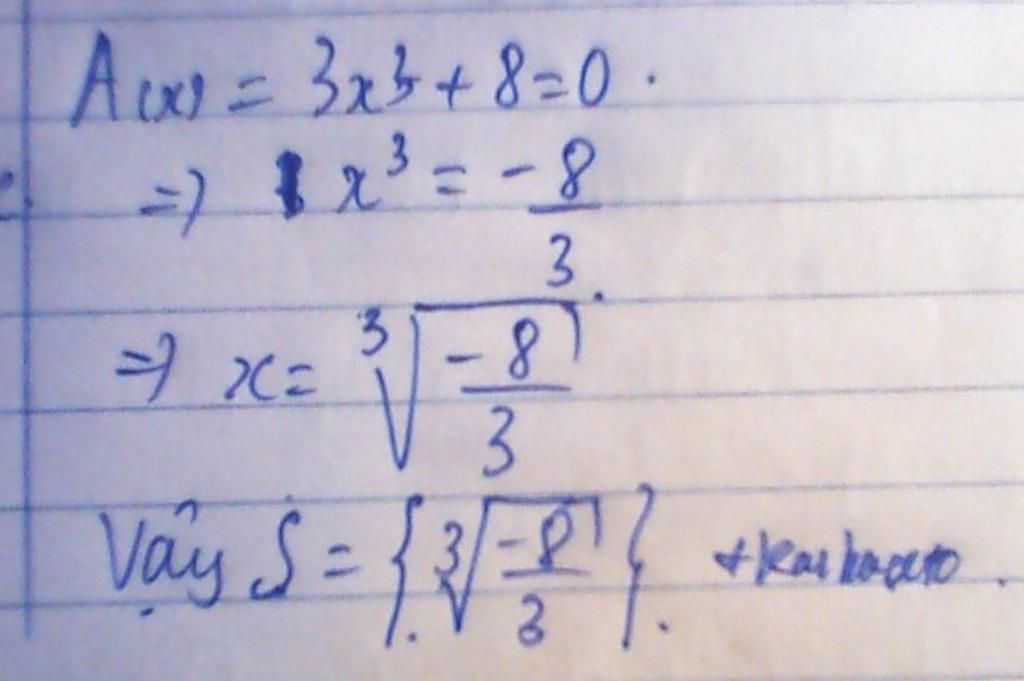 A(x) = 3x³ + 8 = 0.
=> x³ = -8/3
=> x = ∛(-8/3)
Vậy S = {∛(-8/3)}.